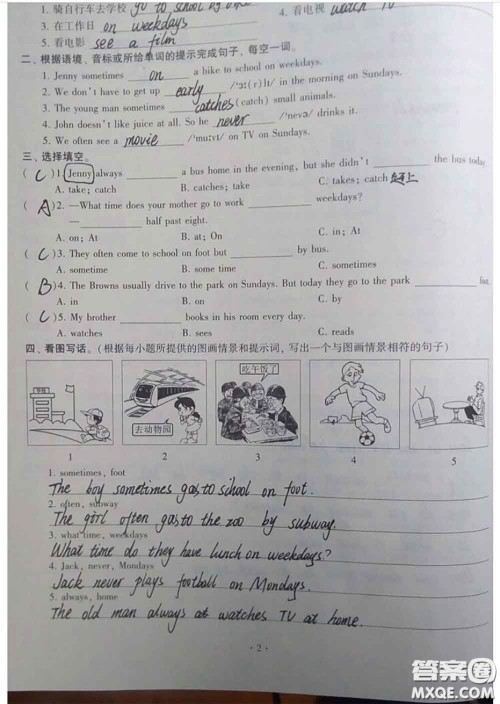 1. 骑自行车去学校 go to school by bike
4. 看电视 watch TV
3. 在工作日 on weekdays
5. 看电影 see a film
二、根据语境、音标或所给单词的提示完成句子,每空一词。
1. Jenny sometimes on a bike to school on weekdays.
2. We don't have to get up early /'ɜː(r)lɪ/ in the morning on Sundays.
3. The young man sometimes catches (catch) small animals.
4. John doesn't like juice at all. So he never /'nevə/ drinks it.
5. We often see a movie /'muːvɪ/ on TV on Sundays.
三、选择填空。
( C )1. Jenny always ____ a bus home in the evening, but she didn't ____ the bus today.
A. take; catch B. catches; take C. takes; catch 赶上
( A )2. —What time does your mother go to work ____ weekdays?
— ____ half past eight.
A. on; At B. at; On C. in; At
( C )3. They often come to school on foot but ____ by bus.
A. sometime B. some time C. sometimes
( B )4. The Browns usually drive to the park on Sundays. But today they go to the park ____ foot.
A. in B. on C. by
( C )5. My brother ____ books in his room every day.
A. watches B. sees C. reads
四、看图写话。(根据每小题所提供的图画情景和提示词,写出一个与图画情景相符的句子)
学校 去动物园 吃午饭了
1 2 3 4 5
1. sometimes, foot
The boy sometimes goes to school on foot.
2. often, subway
The girl often goes to the zoo by subway.
3. what time, weekdays
What time do they have lunch on weekdays?
4. Jack, never, Mondays
Jack never plays football on Mondays.
5. always, home
The old man always at watches TV at home.
· 2 ·
答案圈
MXQE.COM